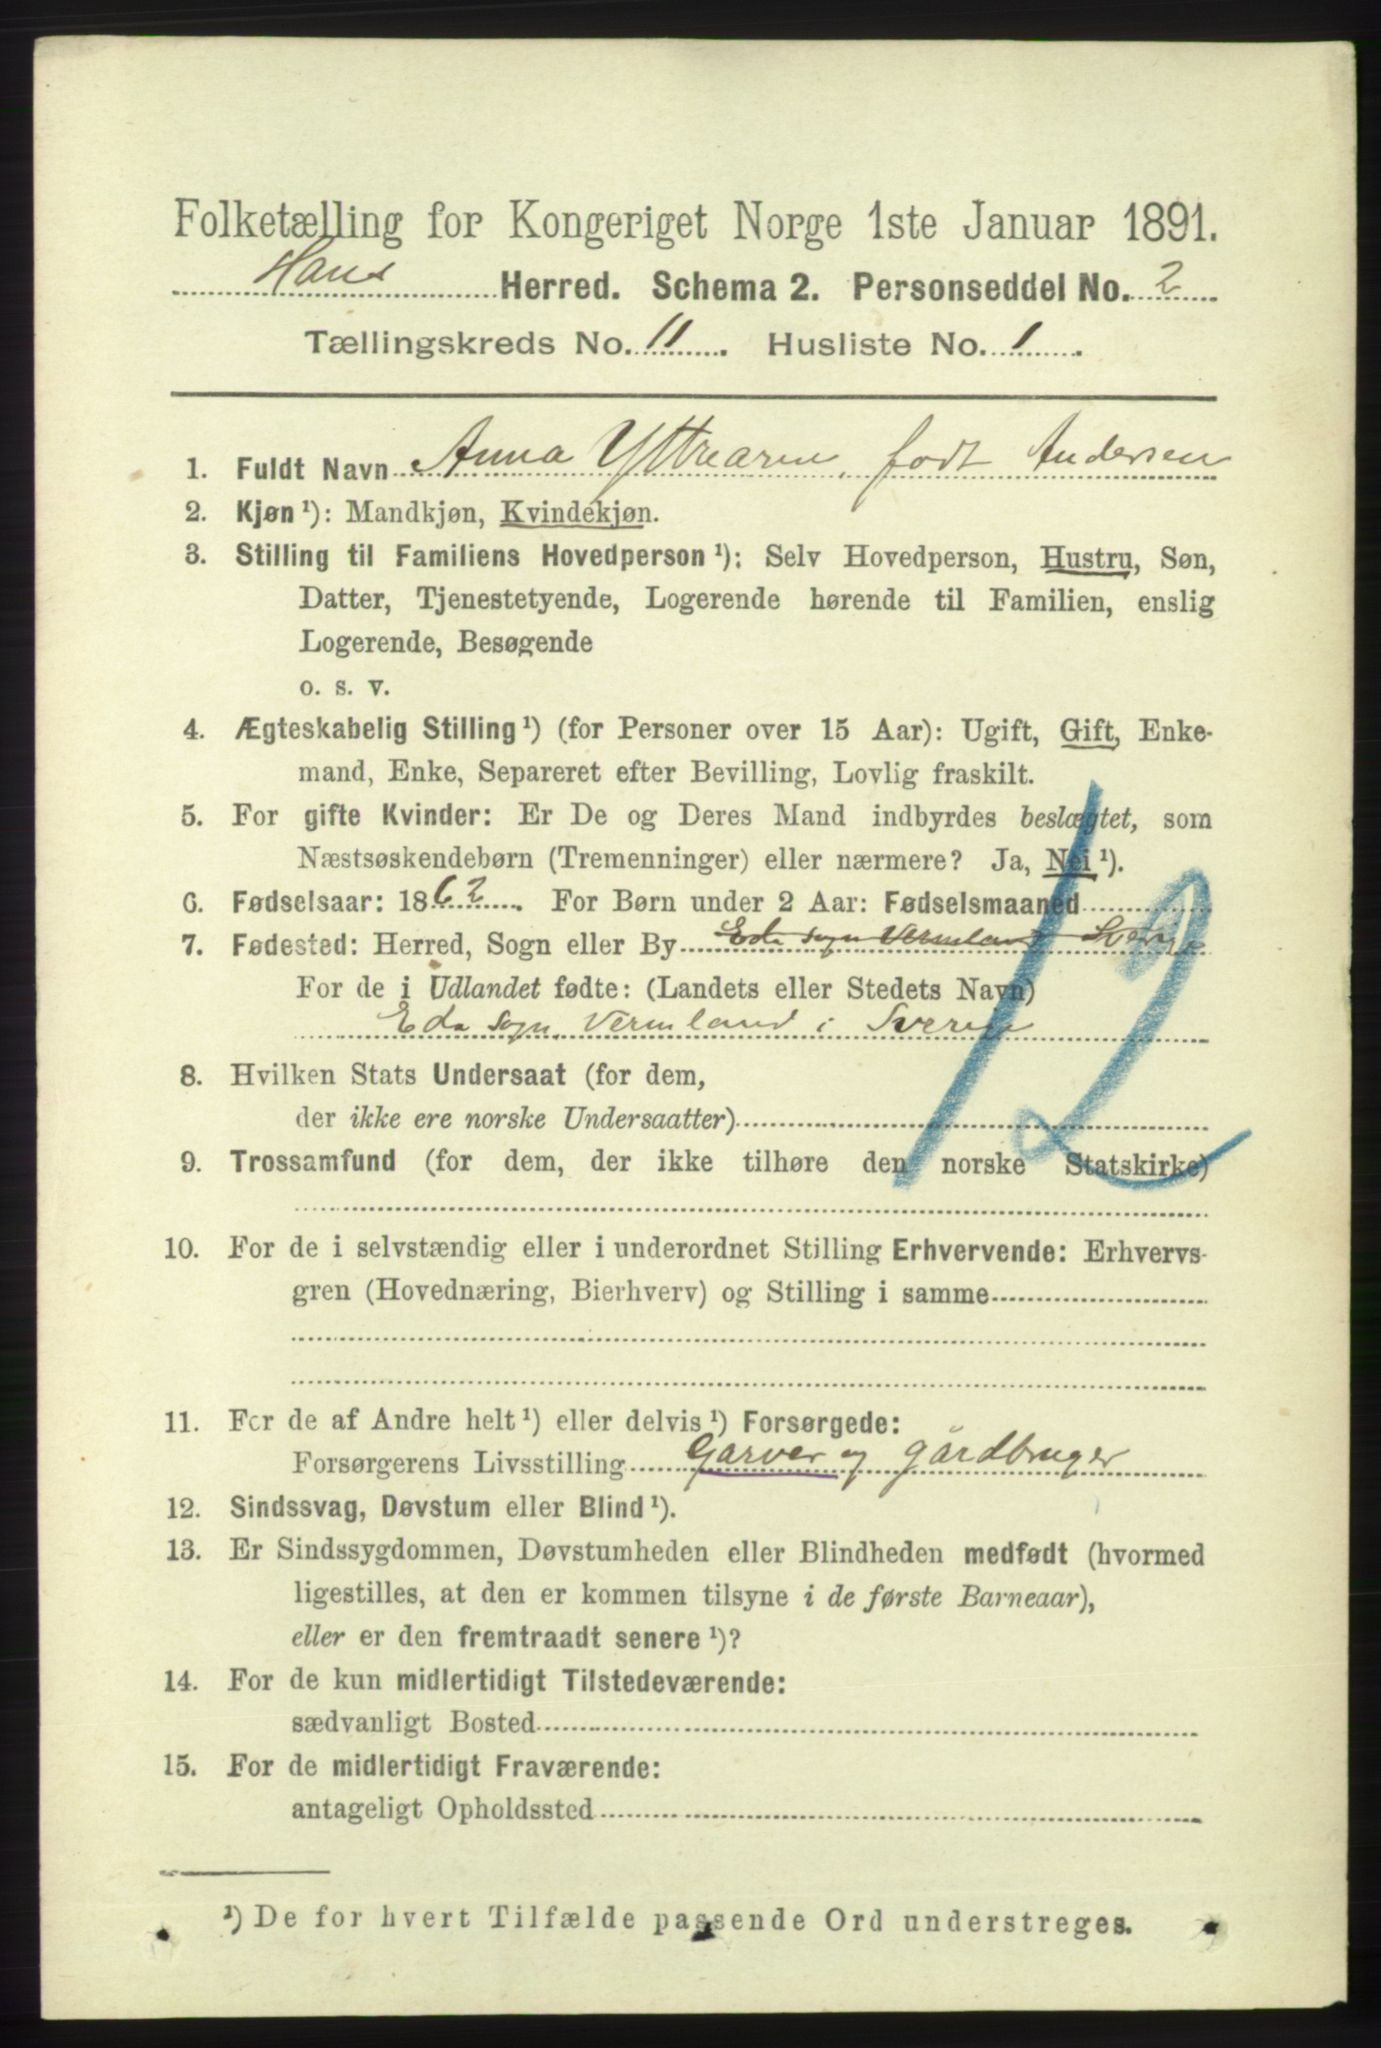 Folketælling for Kongeriget Norge 1ste Januar 1891.
Haus Herred. Schema 2. Personseddel No. 2
Tællingskreds No. 11. Husliste No. 1.
1. Fuldt Navn Anna Yttrearne, født Andersen
2. Kjøn ¹): Mandkjøn, Kvindekjøn.
3. Stilling til Familiens Hovedperson ¹): Selv Hovedperson, Hustru, Søn,
Datter, Tjenestetyende, Logerende hørende til Familien, enslig
Logerende, Besøgende
o. s. v.
4. Ægteskabelig Stilling ¹) (for Personer over 15 Aar): Ugift, Gift, Enke-
mand, Enke, Separeret efter Bevilling, Lovlig fraskilt.
5. For gifte Kvinder: Er De og Deres Mand indbyrdes beslægtet, som
Næstsøskendebørn (Tremenninger) eller nærmere? Ja, Nei ¹).
6. Fødselsaar: 1862. For Børn under 2 Aar: Fødselsmaaned
7. Fødested: Herred, Sogn eller By Eda sogn Vermland Sverige
For de i Udlandet fødte: (Landets eller Stedets Navn)
Eda sogn Vermland i Sverige
12
8. Hvilken Stats Undersaat (for dem,
der ikke ere norske Undersaatter)
9. Trossamfund (for dem, der ikke tilhøre den norske Statskirke)
10. For de i selvstændig eller i underordnet Stilling Erhvervende: Erhvervs-
gren (Hovednæring, Bierhverv) og Stilling i samme
11. For de af Andre helt ¹) eller delvis ¹) Forsørgede:
Forsørgerens Livsstilling Garver og gårdbruger
12. Sindssvag, Døvstum eller Blind ¹).
13. Er Sindssygdommen, Døvstumheden eller Blindheden medfødt (hvormed
ligestilles, at den er kommen tilsyne i de første Barneaar),
eller er den fremtraadt senere ¹)?
14. For de kun midlertidigt Tilstedeværende:
sædvanligt Bosted
15. For de midlertidigt Fraværende:
antageligt Opholdssted
¹) De for hvert Tilfælde passende Ord understreges.